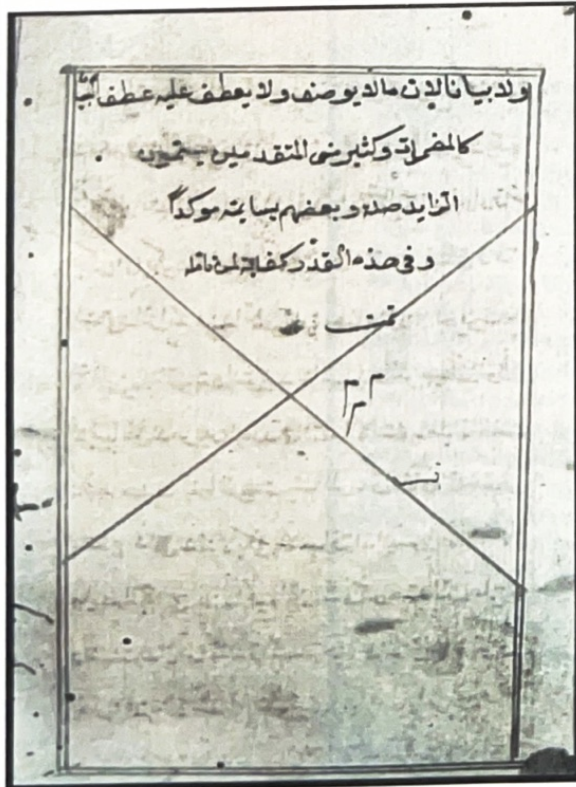 ولا بيانا لان مالا يوصف ولا يعطف عليه عطف البيان
كالمضمرات وكثير من المتقدمين يسمون
الزايد صلة وبعضهم يسميه موكداً
وفي هذه القدر كفاية لمن تأمله
تمت
م م م